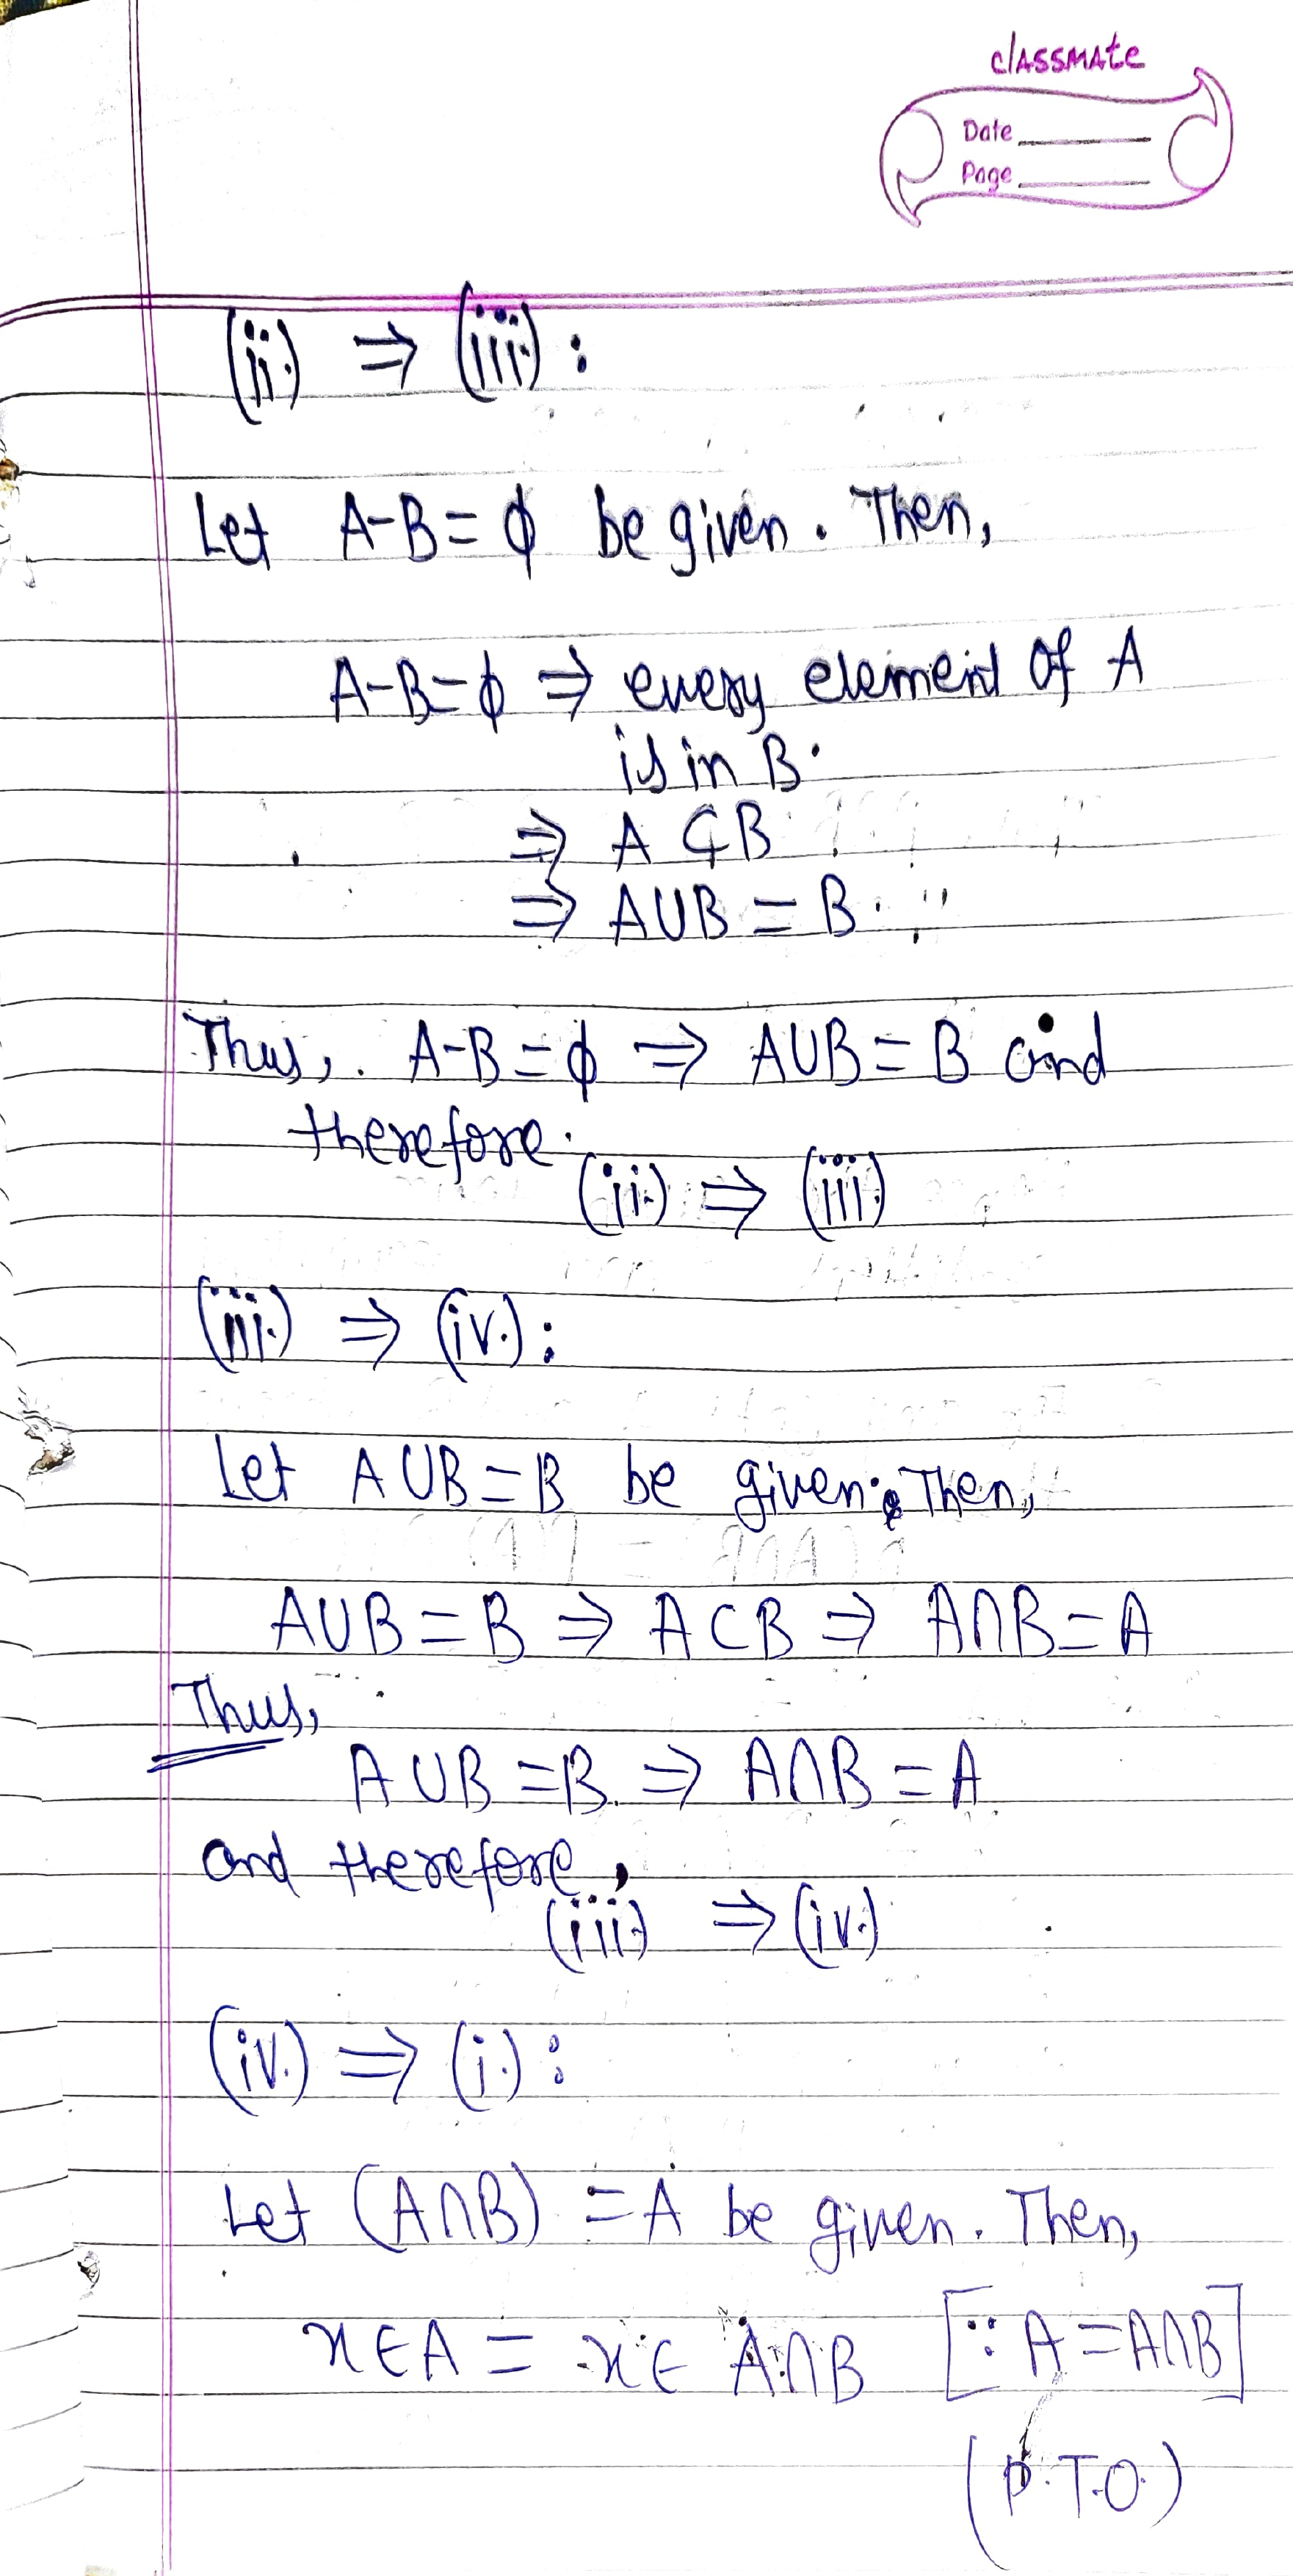 classmate
Date
Page
(ii.) ⇒ (iii.) :
Let A-B = ϕ be given. Then,
A-B = ϕ ⇒ every element of A
is in B.
⇒ A ⊂ B
⇒ A∪B = B.
Thus, A-B = ϕ ⇒ A∪B = B and
therefore.
(ii.) ⇒ (iii.)
(iii.) ⇒ (iv.) :
Let A∪B = B be given. Then,
A∪B = B ⇒ A⊂B ⇒ A∩B = A
Thus,
A∪B = B. ⇒ A∩B = A
and therefore,
(iii.) ⇒ (iv.)
(iv.) ⇒ (i.) :
Let (A∩B) = A be given. Then,
x∈A = x∈ A∩B [∵ A = A∩B]
(P.T.O.)